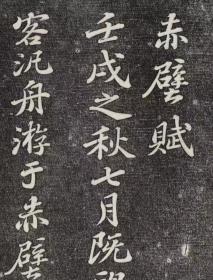 赤壁賦
壬戌之秋七月既望
客汎舟游于赤壁